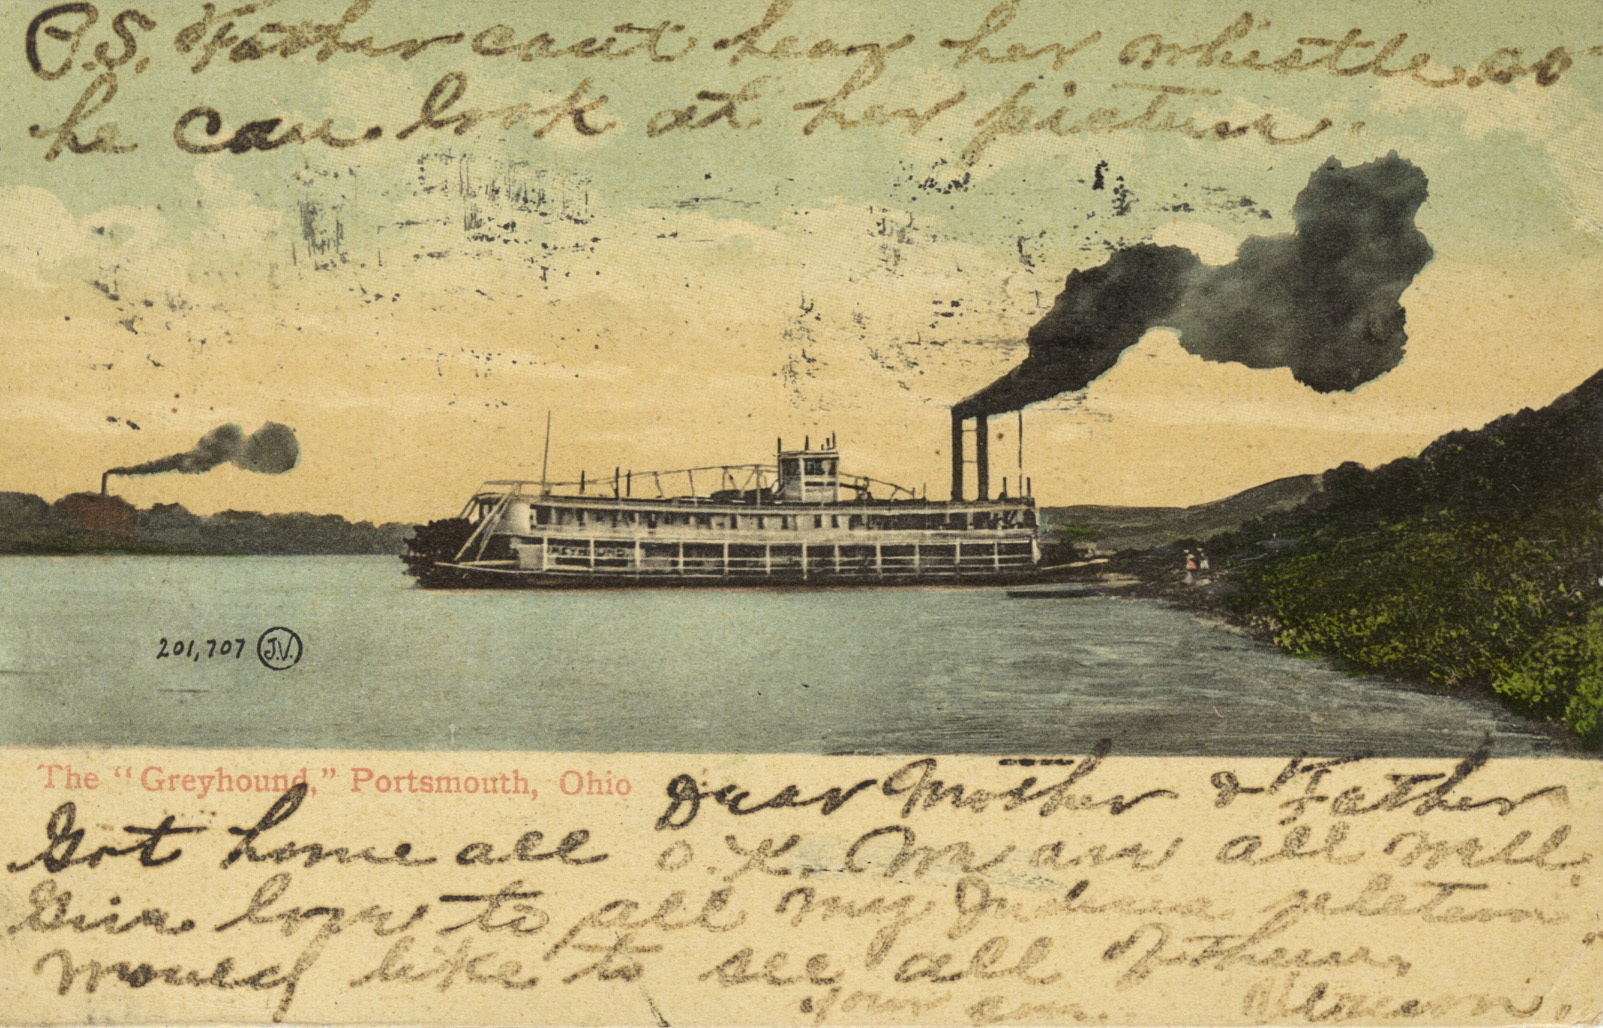 P.S. Father can't hear her whistle so
he can look at her picture.
GREYHOUND
201,707 J.V.
The "Greyhound," Portsmouth, Ohio
Dear Mother & Father
Got home all O.K. We are all well.
Give love to all my Indiana relatives.
would like to see all of them.
Your son. Vernon.